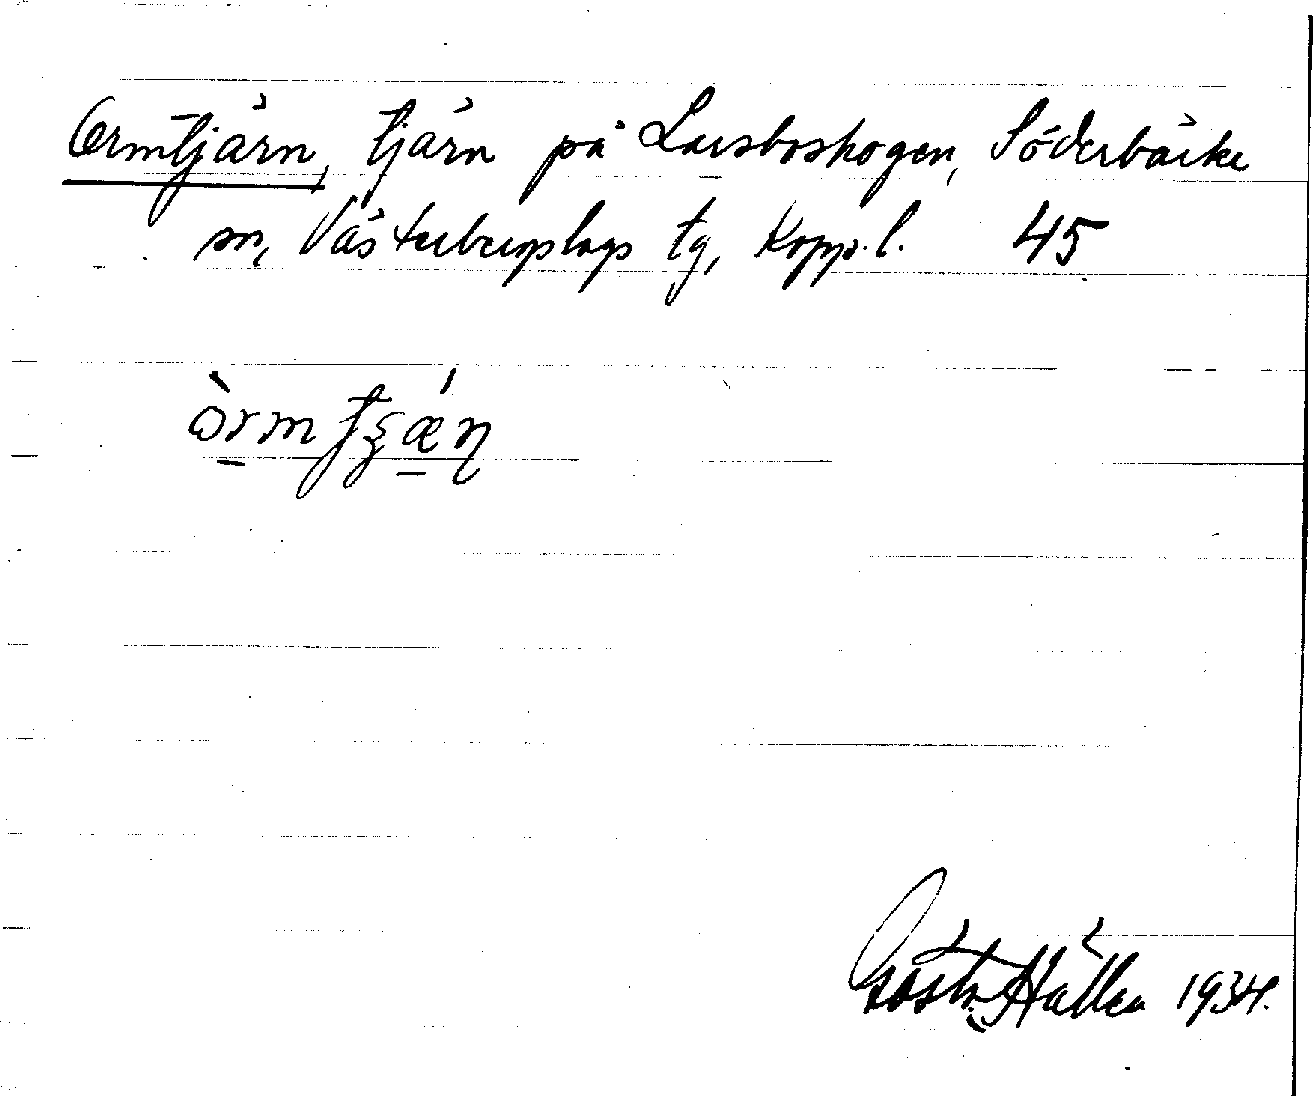 Ormtjärn, tjärn på Larsboskogen, Söderbärke
sn, Västerbergslags tg, Kopp. l. 45
Gösta Hállen 1934.